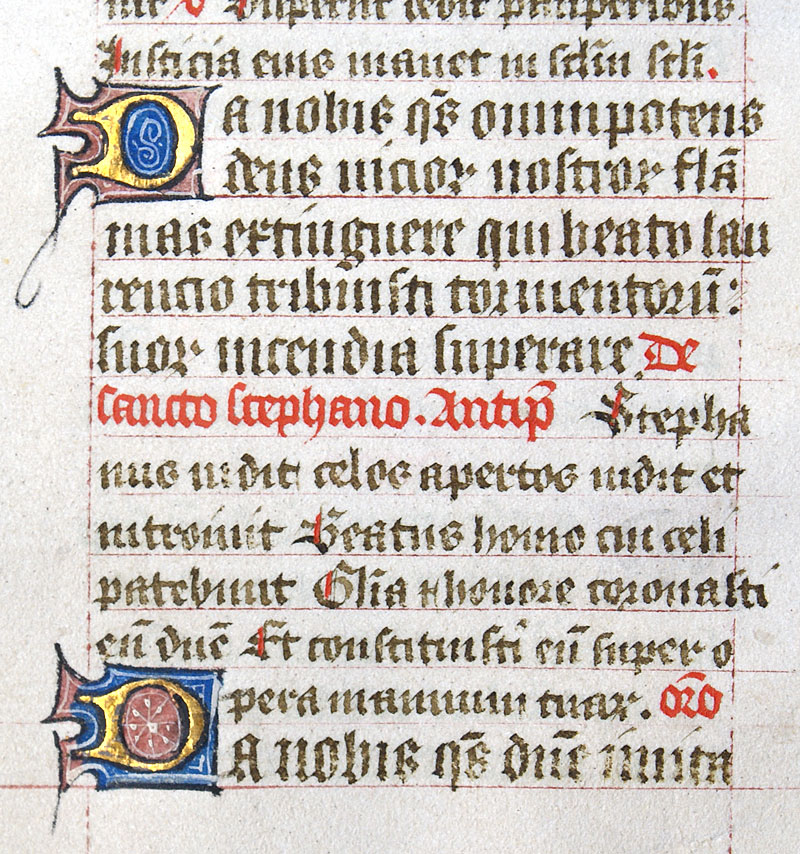 Dispersit dedit pauperibus
Iusticia eius manet in sclm scli.
Da nobis qs omnipotens
deus uicior nostror flā
mas extinguere qui beato lau
rencio tribuisti tormentorū:
suor incendia superare. De
sancto stephano. Antiph̄ Stepha
nus uidit celos apertos uidit et
introiuit Beatus homo cui celi
patebunt Glīa ⁊ honore coronasti
eū dn̄e Et constituisti eū super o
pera manuum tuar. or̄o
Da nobis qs dn̄e imita